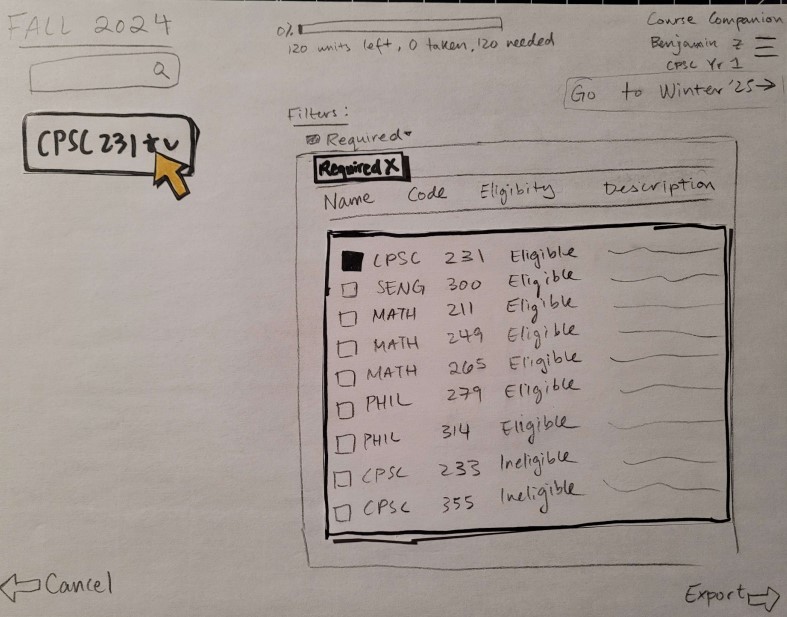 FALL 2024
0%
120 units left, 0 taken, 120 needed
Course Companion
Benjamin Z
CPSC Yr 1
Go to Winter '25→
CPSC 231
Filters:
Required
Required X
Name Code Eligibity Description
CPSC 231 Eligible
SENG 300 Eligible
MATH 211 Eligible
MATH 249 Eligible
MATH 265 Eligible
PHIL 279 Eligible
PHIL 314 Eligible
CPSC 233 Ineligible
CPSC 355 Ineligible
Cancel
Export